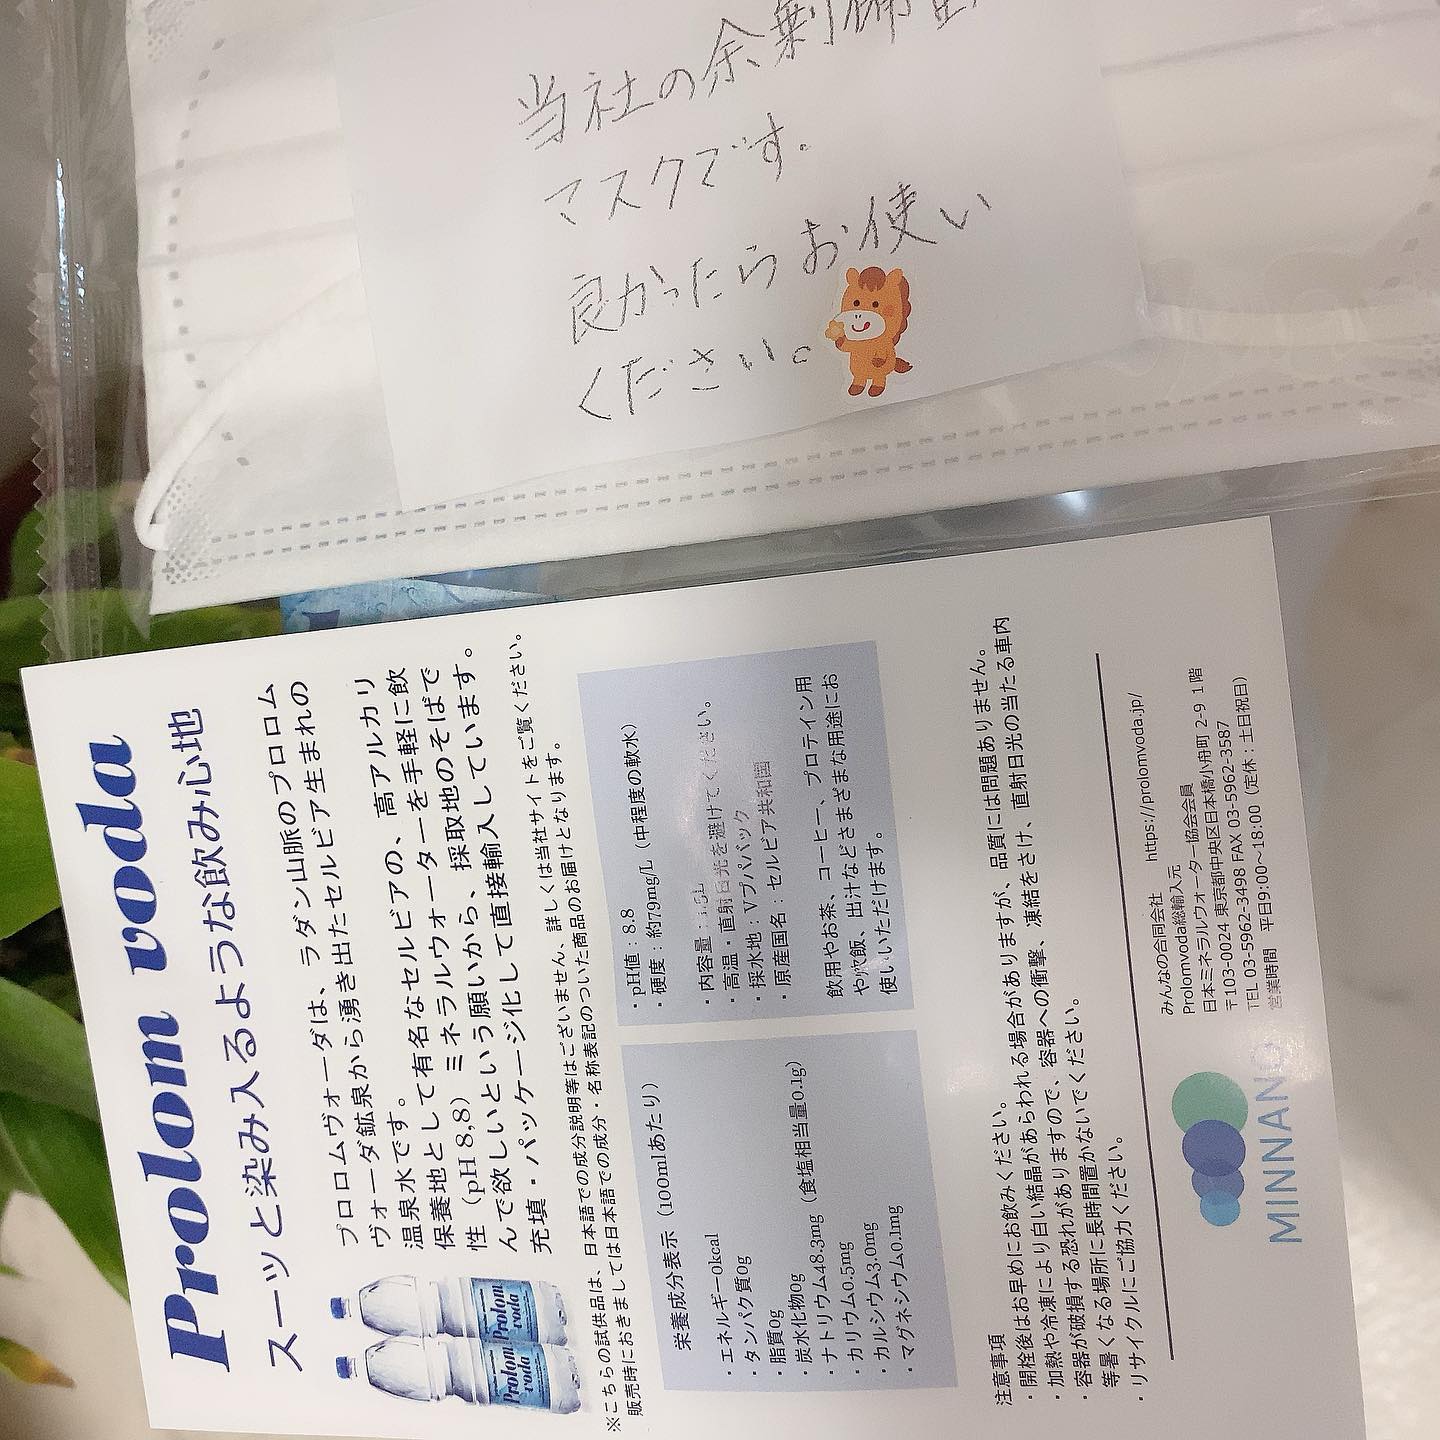 当社の余剰備蓄
マスクです。
良かったらお使い
ください。
Prolom voda
スーッと染み入るような飲み心地
プロロムヴォーダは、ラダン山脈のプロロム
ヴォーダ鉱泉から湧き出たセルビア生まれの
温泉水です。
保養地として有名なセルビアの、高アルカリ
性（pH 8.8）ミネラルウォーターを手軽に飲
んで欲しいという願いから、採取地のそばで
充填・パッケージ化して直接輸入しています。
※こちらの試供品は、日本語での成分説明等はございません、詳しくは当社サイトをご覧ください。
販売時におきましては日本語での成分・名称表記のついた商品のお届けとなります。
Prolom
voda
Prolom
voda
栄養成分表示（100mlあたり）
・エネルギー0kcal
・タンパク質0g
・脂質0g
・炭水化物0g
・ナトリウム48.3mg（食塩相当量0.1g）
・カリウム0.5mg
・カルシウム3.0mg
・マグネシウム0.1mg
・pH値：8.8
・硬度：約79mg/L（中程度の軟水）
・内容量：1.5L
・高温・直射日光を避けてください。
・採水地：Vプパバック
・原産国名：セルビア共和国
飲用やお茶、コーヒー、プロテイン用
や炊飯、出汁などさまざまな用途にお
使いいただけます。
注意事項
・開栓後はお早めにお飲みください。
・加熱や冷凍により白い結晶があらわれる場合がありますが、品質には問題ありません。
・容器が破損する恐れがありますので、容器への衝撃、凍結をさけ、直射日光の当たる車内
等暑くなる場所に長時間置かないでください。
・リサイクルにご協力ください。
MINNANO
みんなの合同会社 https://prolomvoda.jp/
Prolomvoda総輸入元
日本ミネラルウォーター協会会員
〒103-0024 東京都中央区日本橋小舟町 2-9 1階
TEL 03-5962-3498 FAX 03-5962-3587
営業時間 平日9:00～18:00（定休：土日祝日）